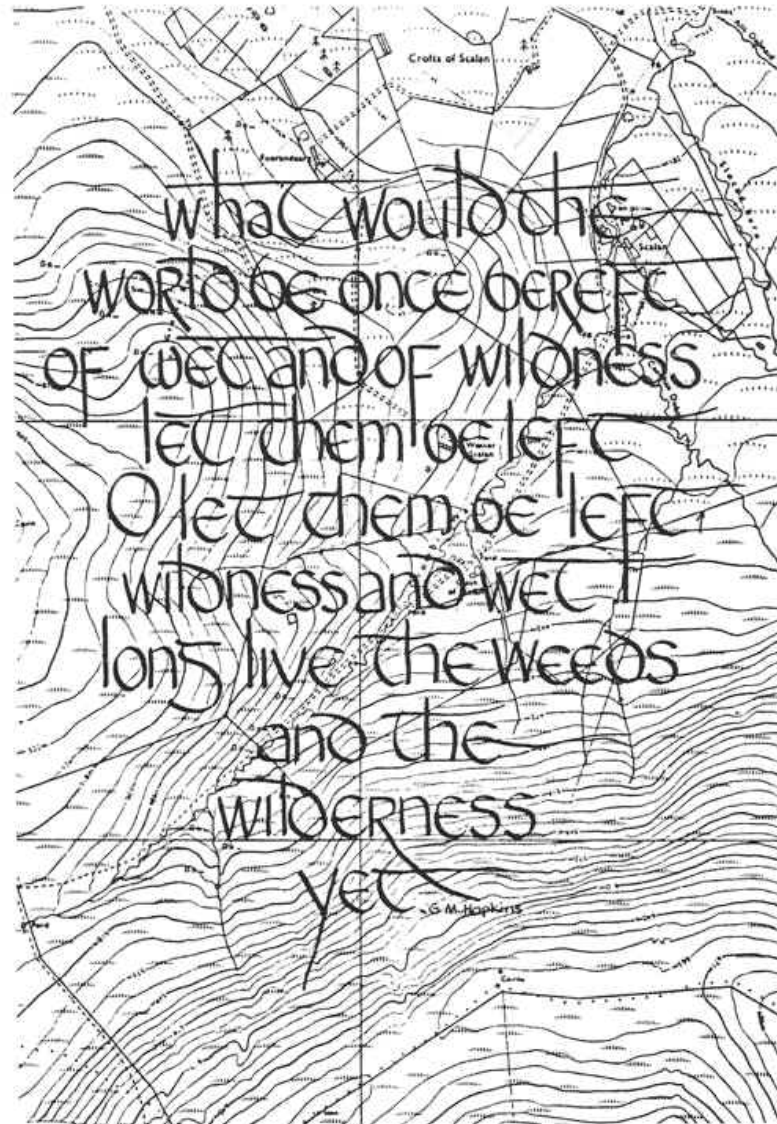 Crofts of Scalan
Scalan
what would the
world be once bereft
of wet and of wildness
let them be left
O let them be left
wildness and wet
long live the weeds
and the
wilderness
yet
G.M. Hopkins
Cairn